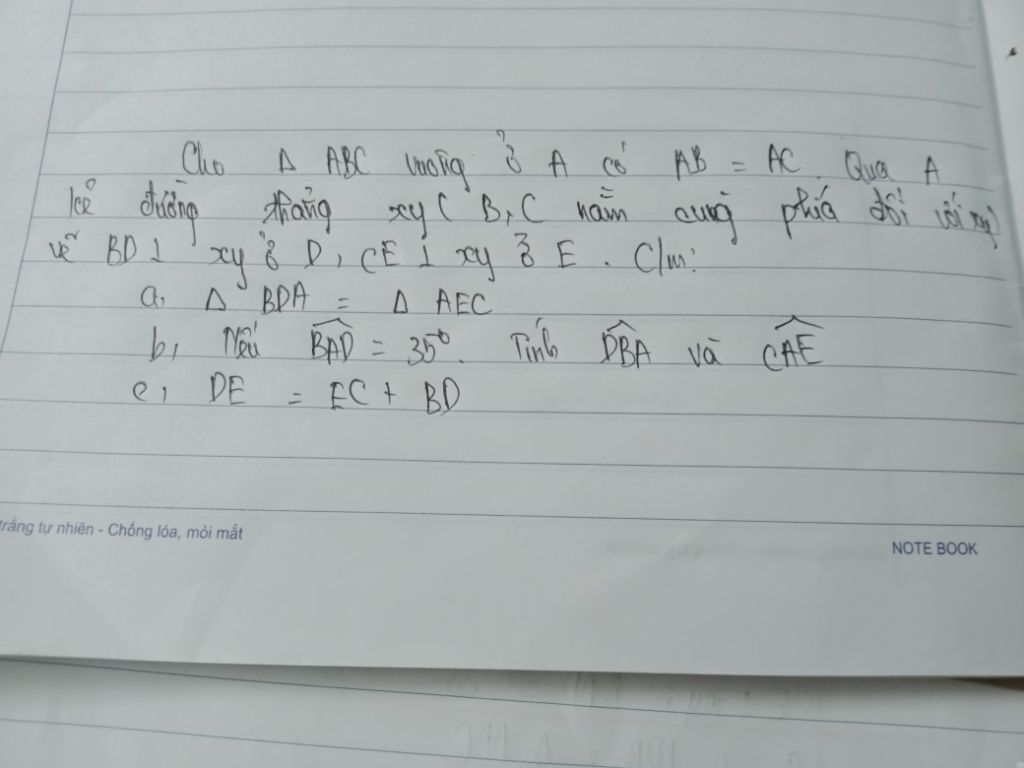 Cho Δ ABC vuông ở A có AB = AC. Qua A
kẻ đường thẳng xy ( B, C nằm cùng phía đối với xy)
vẽ BD ⊥ xy ở D, CE ⊥ xy ở E. C/m:
a, Δ BDA = Δ AEC
b, Nếu \widehat{BAD} = 35°. Tính \widehat{DBA} và \widehat{CAE}
c, DE = EC + BD
trắng tự nhiên - Chống lóa, mỏi mắt
NOTE BOOK